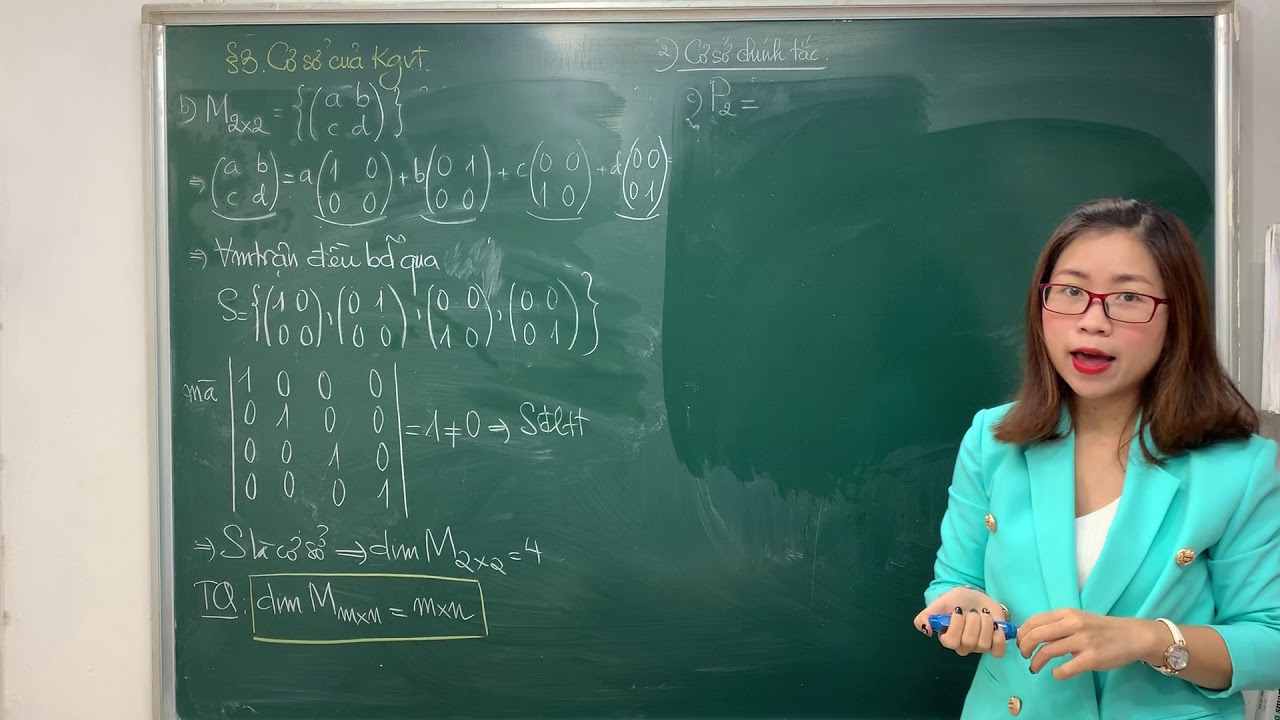 §3. Cơ sở của Kgvt.
b) M₂ₓ₂ = {(a b; c d)}
⇒ (a b; c d) = a(1 0; 0 0) + b(0 1; 0 0) + c(0 0; 1 0) + d(0 0; 0 1)
⇒ ∀mtrận đều bd qua
S = {(1 0; 0 0), (0 1; 0 0), (0 0; 1 0), (0 0; 0 1)}
mà |1 0 0 0; 0 1 0 0; 0 0 1 0; 0 0 0 1| = 1 ≠ 0 ⇒ S đltt
⇒ S là cơ sở ⇒ dim M₂ₓ₂ = 4
TQ: dim Mₘₓₙ = m×n
2) Cơ sở chính tắc.
c) P₂ =